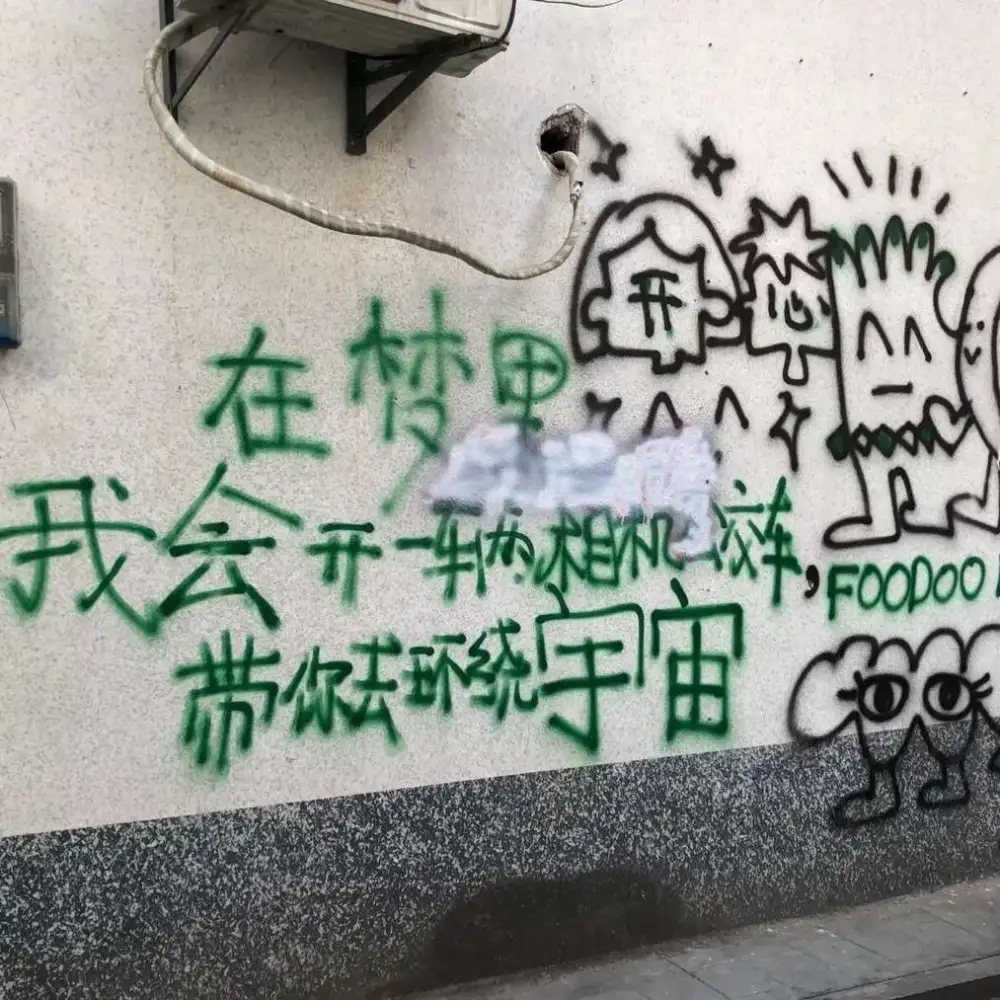 在梦里
我会开一车辆为相机 交车,
带你去环绕宇宙
开心
FOODOO